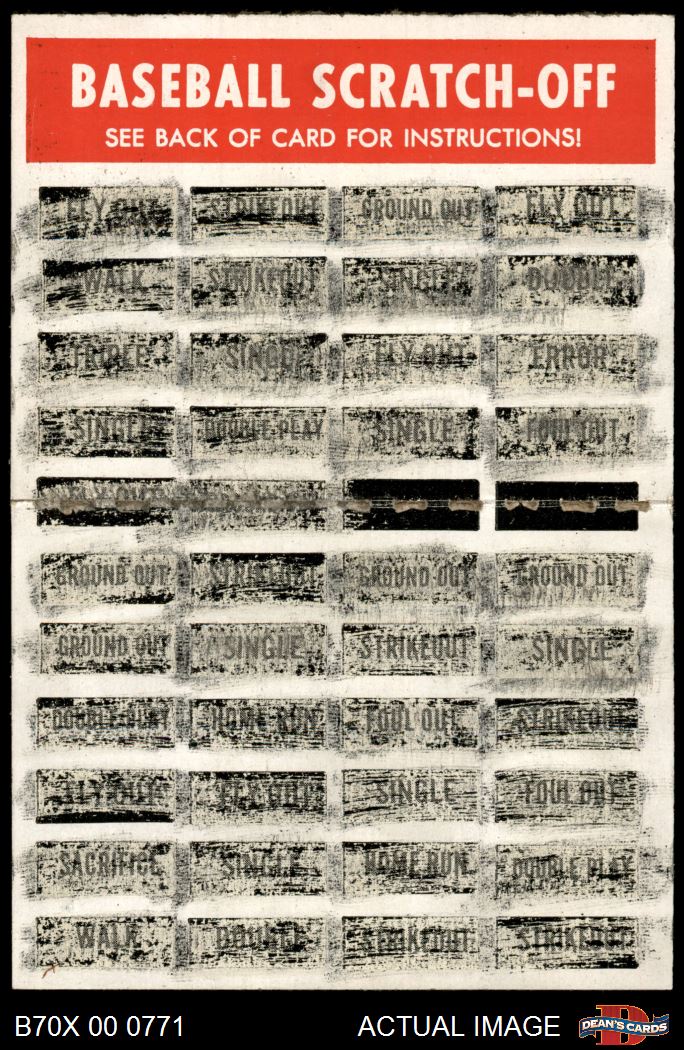 BASEBALL SCRATCH-OFF
SEE BACK OF CARD FOR INSTRUCTIONS!
FLY OUT STRIKEOUT GROUND OUT FLY OUT
WALK STRIKEOUT SINGLE DOUBLE
TRIPLE SINGLE FLY OUT ERROR
SINGLE DOUBLE PLAY SINGLE FOUL OUT
FLY OUT
GROUND OUT STRIKEOUT GROUND OUT GROUND OUT
GROUND OUT SINGLE STRIKEOUT SINGLE
DOUBLE PLAY HOME RUN FOUL OUT STRIKEOUT
FLY OUT FLY OUT SINGLE FOUL OUT
SACRIFICE SINGLE HOME RUN DOUBLE PLAY
WALK DOUBLE STRIKEOUT STRIKEOUT
B70X 00 0771 ACTUAL IMAGE D DEAN'S CARDS